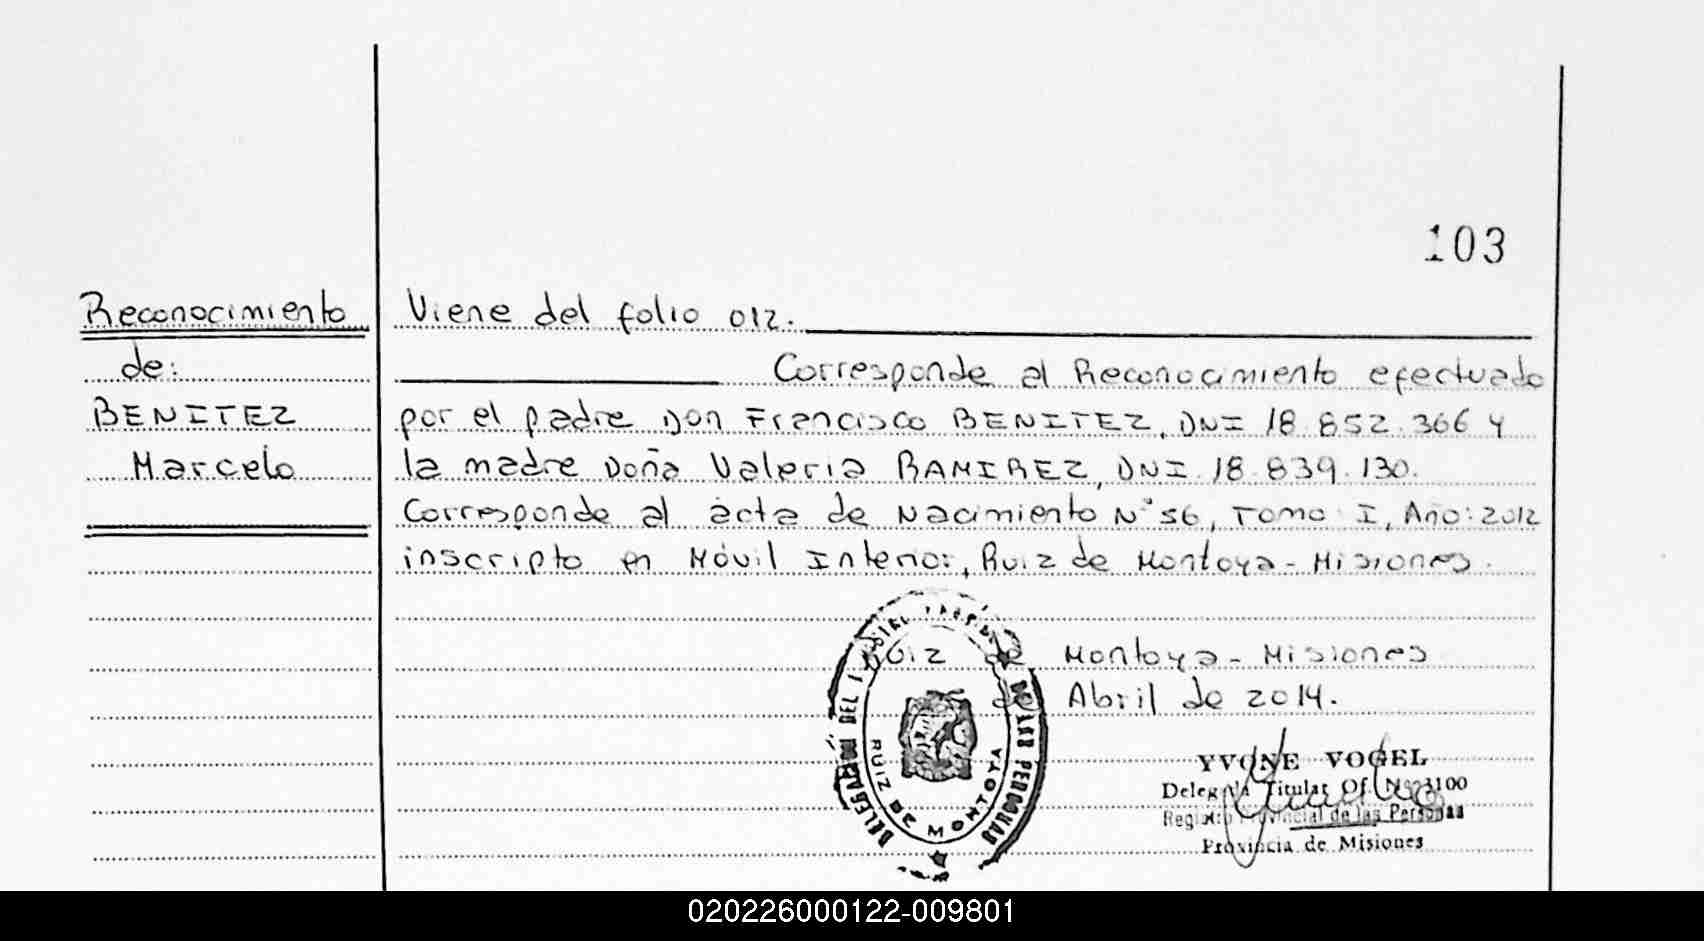 103
Reconocimiento
de:
BENITEZ
Marcelo
Viene del folio 012.
Corresponde al Reconocimiento efectuado
por el padre Don Francisco BENITEZ, DNI 18.852.366 y
la madre Doña Valeria RAMIREZ, DNI 18.839.130.
Corresponde al acta de Nacimiento N° 56, Tomo: I, Año: 2012
inscripto en Móvil Interior, Ruiz de Montoya - Misiones.
Ruiz de Montoya - Misiones
de Abril de 2014.
DELEGACIÓN DEL DE LAS PERSONAS
RUIZ DE MONTOYA
YVONE VOGEL
Delegada Titular Of. Nº 3100
Registro Provincial de las Personas
Provincia de Misiones
020226000122-009801